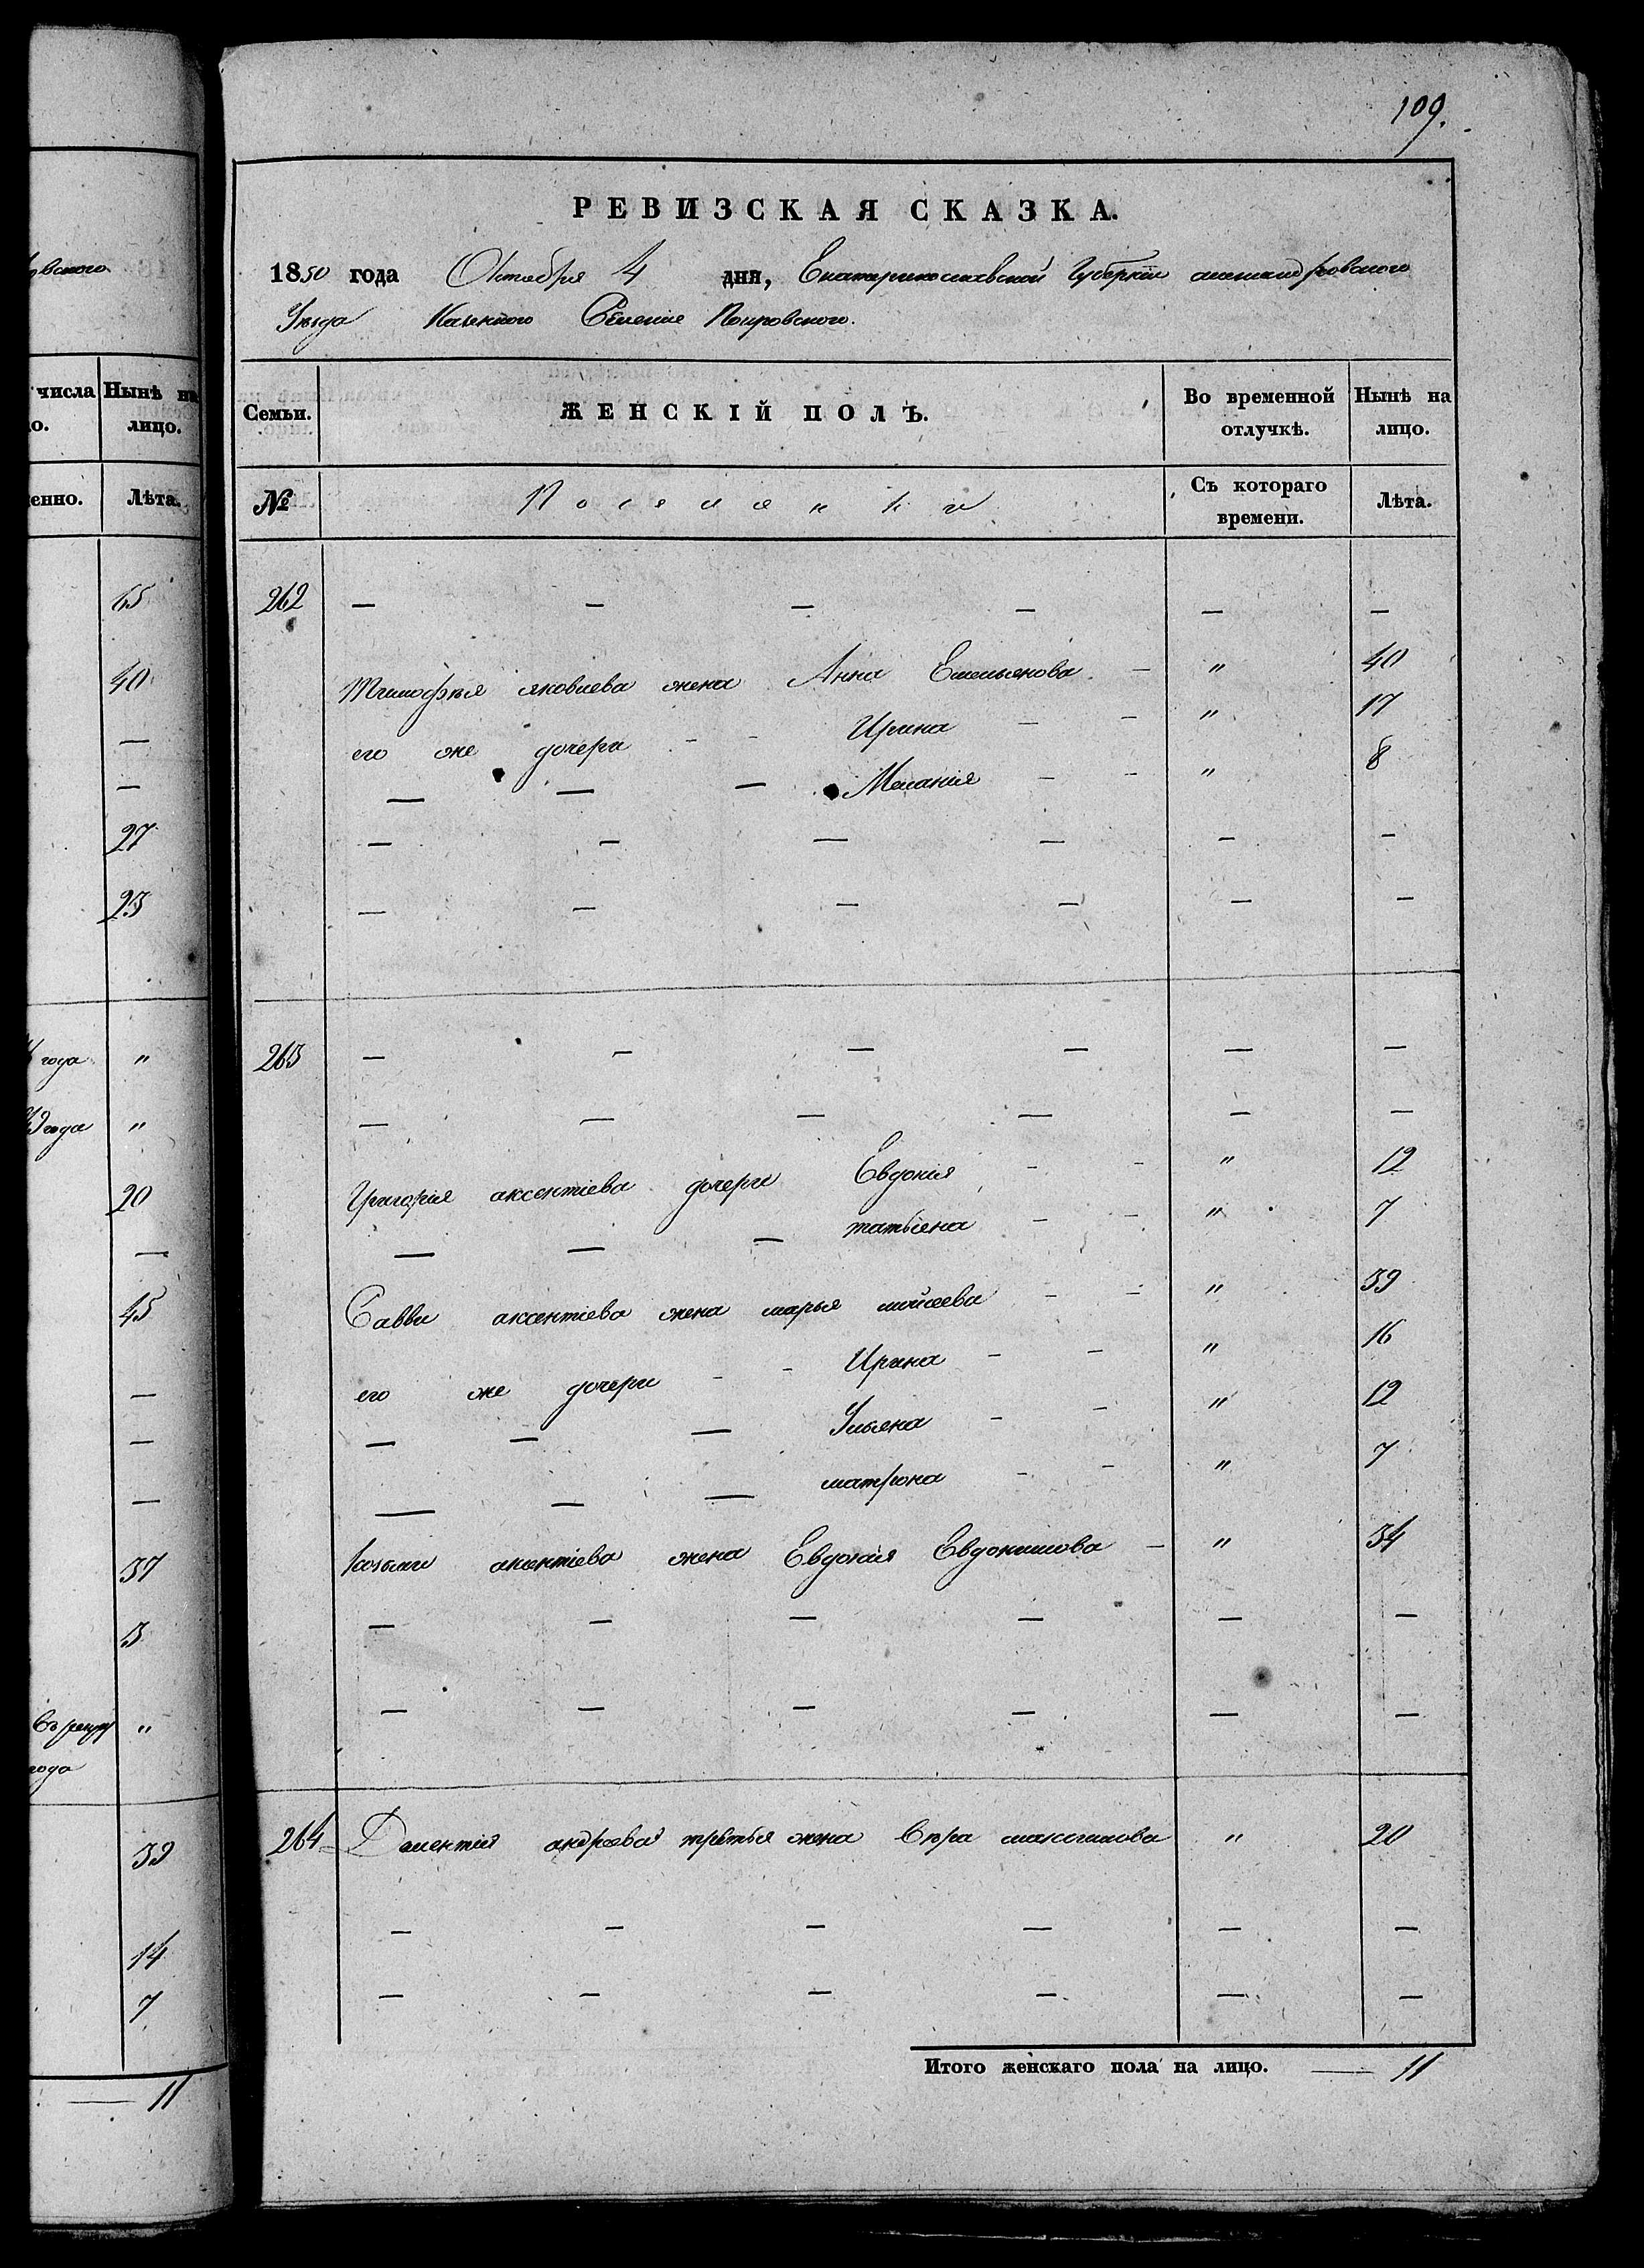 109.
РЕВИЗСКАЯ СКАЗКА.
1850 года Октября 4 дня, Екатеринославской Губернии александровского
Уезда Казенного Селение Покровского.
вского
числа Нынѣ на лицо.
Семьи. ЖЕНСКІЙ ПОЛЪ. Во временной отлучкѣ. Нынѣ на лицо.
енно. Лѣта.
№ Поселянки Съ котораго времени. Лѣта.
65
262 — — — — — —
40
Тимофѣя яковлева жена Анна Емельянова — " 40
его же дочери - - Ирина - - " 17
— — — Мелания - - " 8
—
—
27
— — — — — —
23
— — — — — —
года "
263 — — — — — —
года "
— — — — — —
20
Григория аксентіева дочери Евдокия - - " 12
— — — татьяна - - " 7
—
45
Савви аксентіева жена марья мойсеева - - " 39
его же дочери - - Ирина - - " 16
— — — Ульяна - - " 12
— — — матрона - - " 7
—
—
—
37
Козьми аксентіева жена Евдокия Евдокимова — " 34
3
— — — — — —
"
года
— — — — — —
39
264 Дементия андреева третья жена Вѣра максимова " 20
14
— — — — — —
7
— — — — — —
Итого женскаго пола на лицо. — 11
— 11